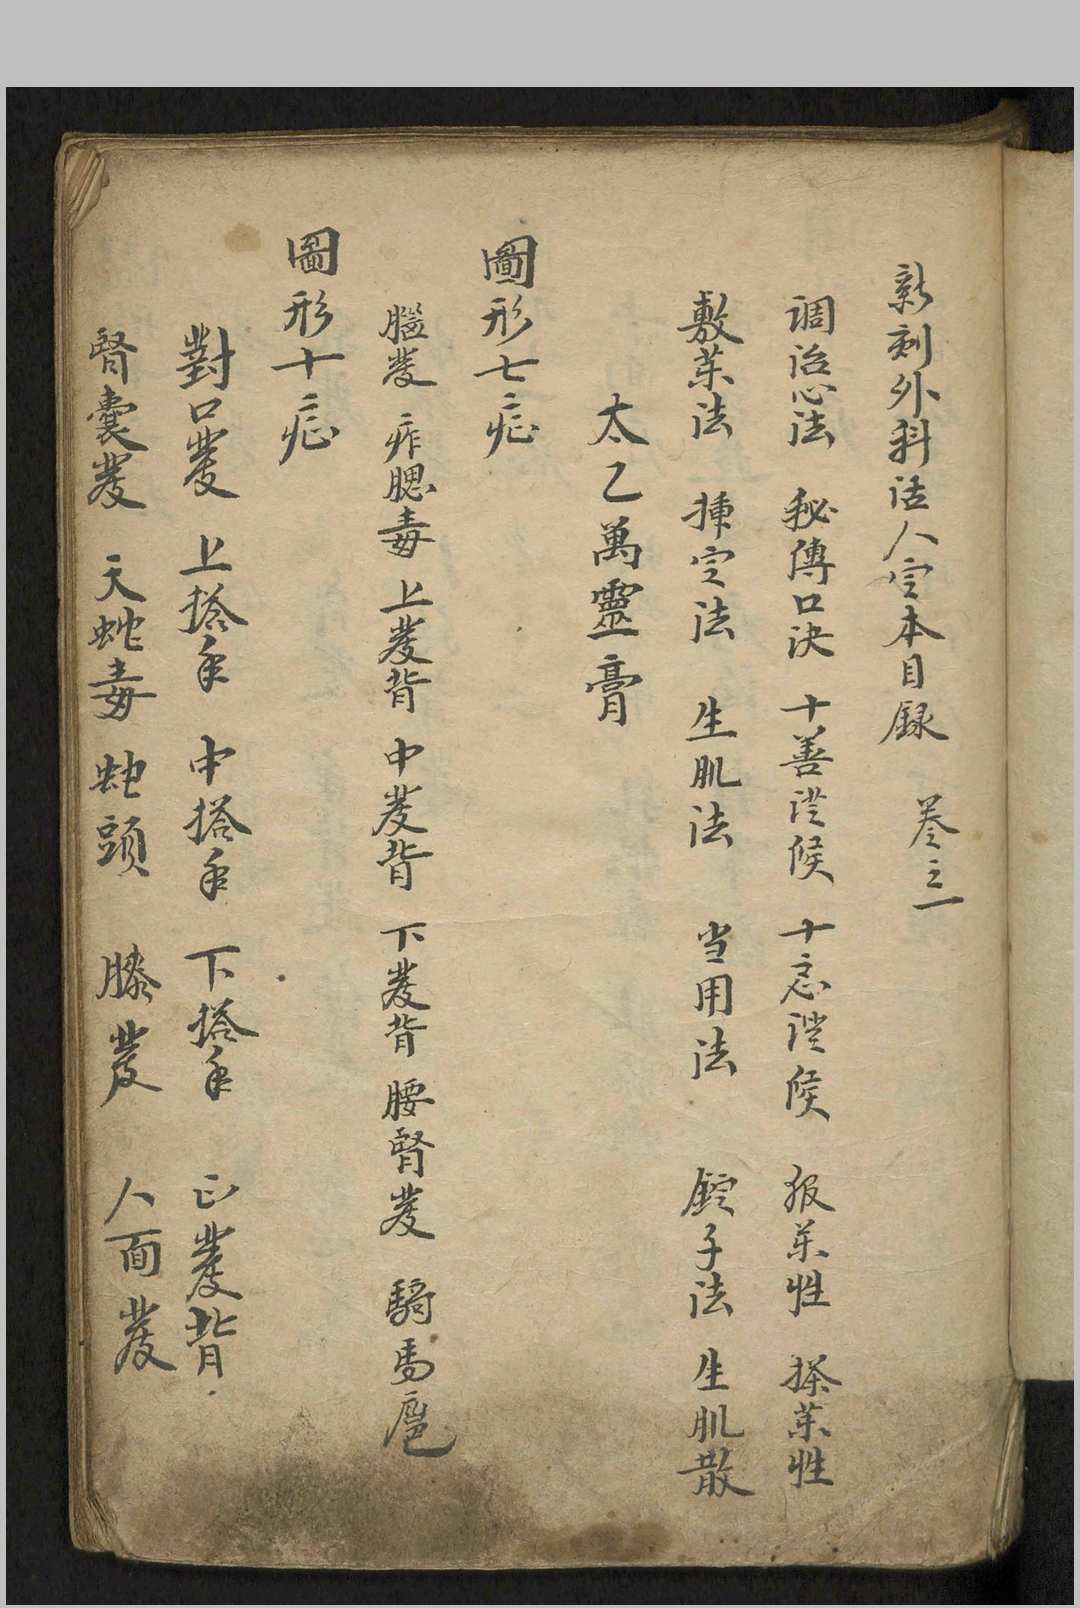 新刻外科活人定本目録 卷之一
调治心法 秘傳口決 十善証候 十忌証候 报薬性 搽薬性
敷薬法 挿定法 生肌法 当用法 錠子法 生肌散
太乙萬靈膏
圖形七症
腦發 痄腮毒 上發背 中發背 下發背 腰腎發 騎馬
圖形十症
對口發 上搭手 中搭手 下搭手 正發背
腎囊發 天蛇毒 蛇頭 膝發 人面發